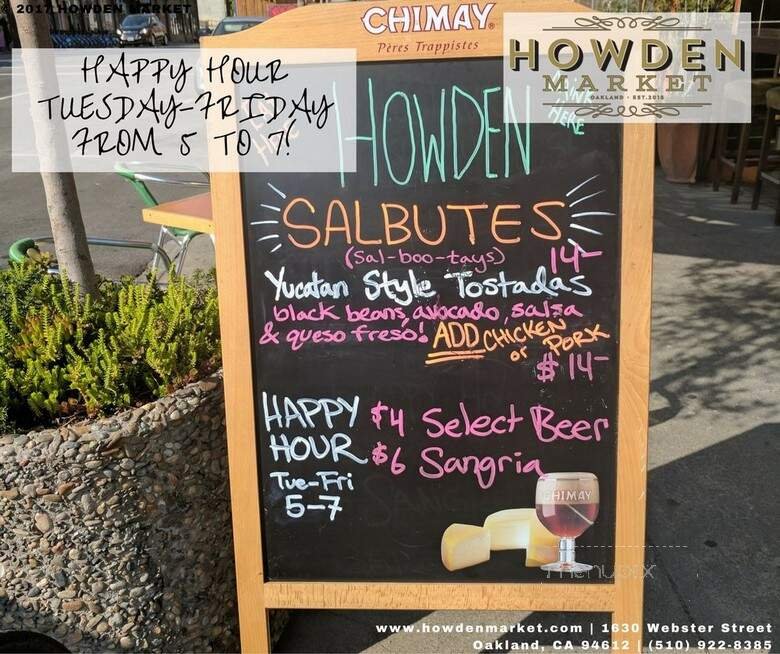 © 2017 HOWDEN MARKET
CHIMAY
Pères Trappistes
HAPPY HOUR
TUESDAY-FRIDAY
FROM 5 TO 7!
HOWDEN
MARKET
OAKLAND · EST. 2015
HERE
HOWDEN
SALBUTES
(Sal-boo-tays) 14-
Yucatan Style Tostadas
black beans, avocado, salsa
& queso freso! ADD CHICKEN
or PORK
$14-
HAPPY $4 Select Beer
HOUR $6 Sangria
Tue-Fri
5-7
CHIMAY
menupix
www.howdenmarket.com | 1630 Webster Street
Oakland, CA 94612 | (510) 922-8385